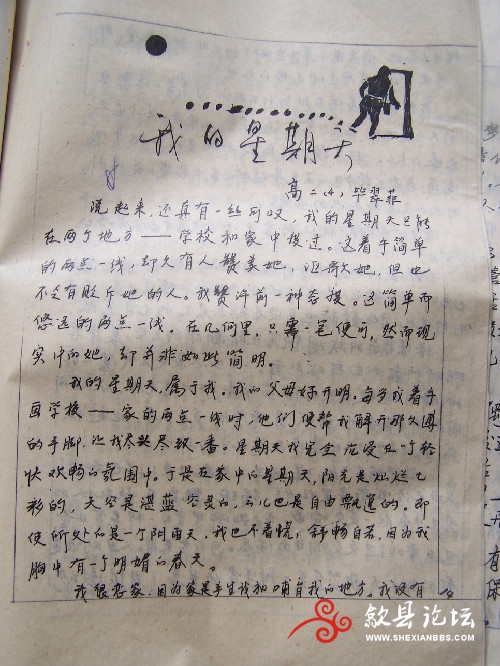 我的星期天
高二.4. 毕翠菲
说起来,还真有一丝可叹,我的星期天只能
在两个地方——学校和家中度过。这看乎简单
的两点一线,却久有人赞美她,讴歌她,但也
不乏有贬斥她的人。我赞许前一种态度。这简单而
悠远的两点一线。在几何里,只需一笔便可,然而现
实中的她,却并非如此简明。
我的星期天,属于我。我的父母好开明。每当我着手
画学校——家的两点一线时,他们便帮我解开那久困
的手脚,让我尽兴尽致一番。星期天我完全沉浸在一个轻
快欢畅的氛围中。于是在家中的星期天,阳光是灿烂七
彩的,天空是湛蓝空灵的,云儿也是自由飘逸的。即
使所处的是一个阴雨天,我也不着慌,舒畅自若,因为我
胸中有一个明媚的春天。
我很恋家,因为家是生我和哺育我的地方。我没有
歙县论坛
WWW.SHEXIANBBS.COM